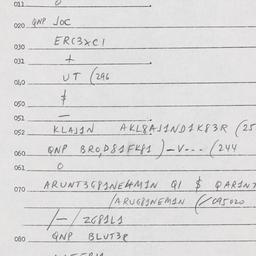 011 0
020 QNP JOC
030 ERC3XCI
031 +
UT (296
040
$
051 —
052 KLAJ1N AKL8AJ1ND1K83R (25
060 QNP BRO,D81FK81 )-V--- (244
061 0
070 ARUNT3G81NE4M1N Q1 $ QAR1NT
/ARUG81NEM1N (/095020
/-/ 2G81L1
080 QNP BLUT3R